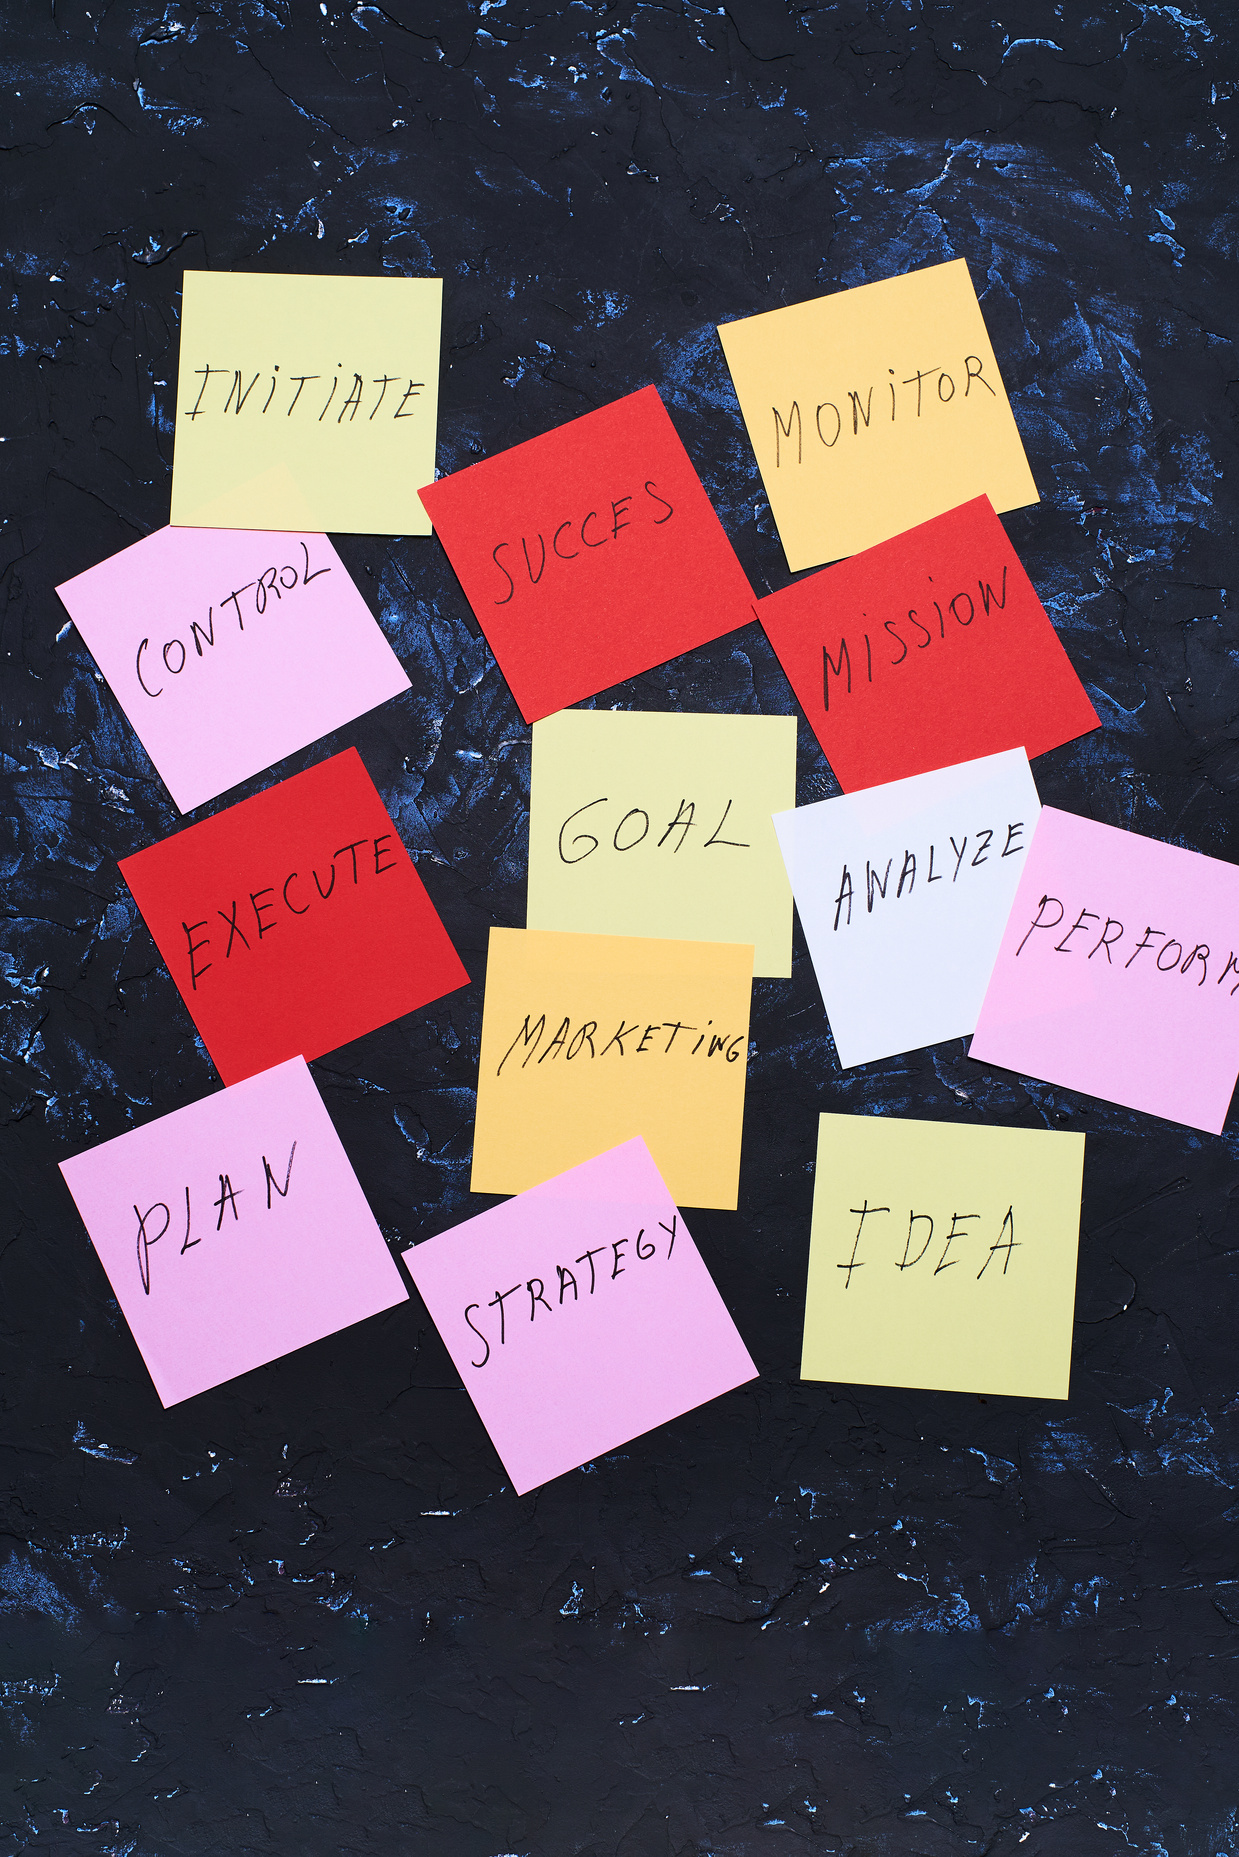 INiTiATE
MONiTOR
SUCCES
CONTROL
MiSSiON
GOAL
ANALYZE
EXECUTE
PERFORM
MARKETiNG
PLAN
STRATEGY
IDEA